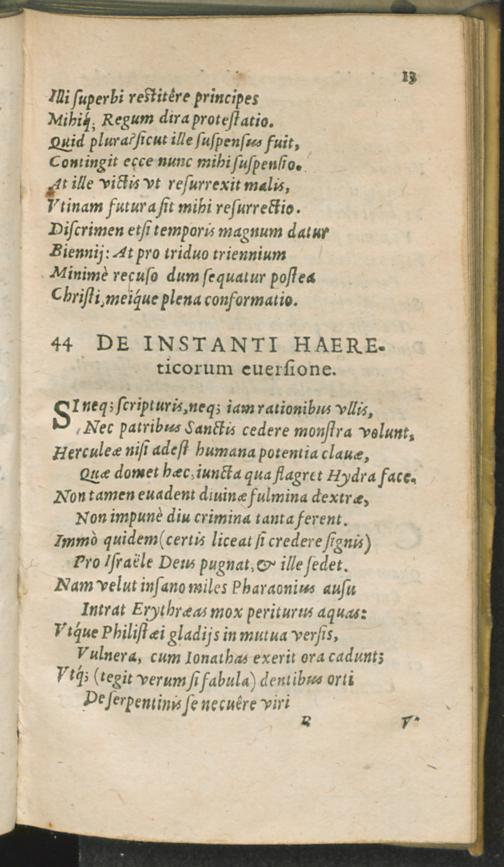 13
Illi superbi restitêre principes
Mihiq́; Regum dira protestatio.
Quid plura? sicut ille suspensus fuit,
Contingit ecce nunc mihi suspensio.
At ille victis vt resurrexit malis,
Vtinam futura sit mihi resurrectio.
Discrimen etsi temporis magnum datur
Biennij: At pro triduo triennium
Minimè recuso dum sequatur postea
Christi, meiq́ue plena conformatio.
44 DE INSTANTI HAERE-
ticorum euersione.
SI neq; scripturis, neq; iam rationibus vllis,
Nec patribus Sanctis cedere monstra volunt,
Herculeæ nisi adest humana potentia clauæ,
Quæ domet hæc, iuncta qua flagret Hydra face.
Non tamen euadent diuinæ fulmina dextræ,
Non impunè diu crimina tanta ferent.
Immò quidem (certis liceat si credere signis)
Pro Israële Deus pugnat, & ille sedet.
Nam velut insano miles Pharaonius ausu
Intrat Erythræas mox periturus aquas:
Vtq́ue Philistæi gladijs in mutua versis,
Vulnera, cum Ionathas exerit ora cadunt;
Vtq́; (tegit verum si fabula) dentibus orti
De serpentinis se necuêre viri
B V-